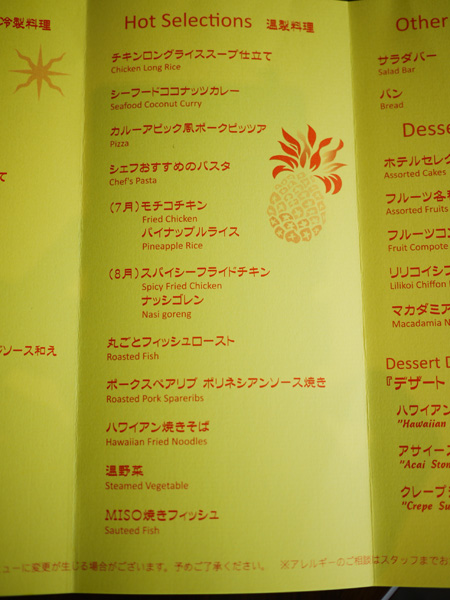 冷製料理
て
ソース和え
Hot Selections 温製料理
チキンロングライススープ仕立て
Chicken Long Rice
シーフードココナッツカレー
Seafood Coconut Curry
カルーアピック風ポークピッツア
Pizza
シェフおすすめのパスタ
Chef's Pasta
(7月)モチコチキン
Fried Chicken
パイナップルライス
Pineapple Rice
(8月)スパイシーフライドチキン
Spicy Fried Chicken
ナッシゴレン
Nasi goreng
丸ごとフィッシュロースト
Roasted Fish
ポークスペアリブ ポリネシアンソース焼き
Roasted Pork Spareribs
ハワイアン焼きそば
Hawaiian Fried Noodles
温野菜
Steamed Vegetable
MISO焼きフィッシュ
Sauteed Fish
Other
サラダバー
Salad Bar
パン
Bread
Desse
ホテルセレク
Assorted Cakes
フルーツ各種
Assorted Fruits
フルーツコン
Fruit Compote
リリコイシフ
Lilikoi Chiffon
マカダミア
Macadamia N
Dessert D
『デザート
ハワイアン
"Hawaiian
アサイース
"Acai Ston
クレープシ
"Crepe Su
ューに変更が生じる場合がございます。予めご了承ください。 ※アレルギーのご相談はスタッフまでお